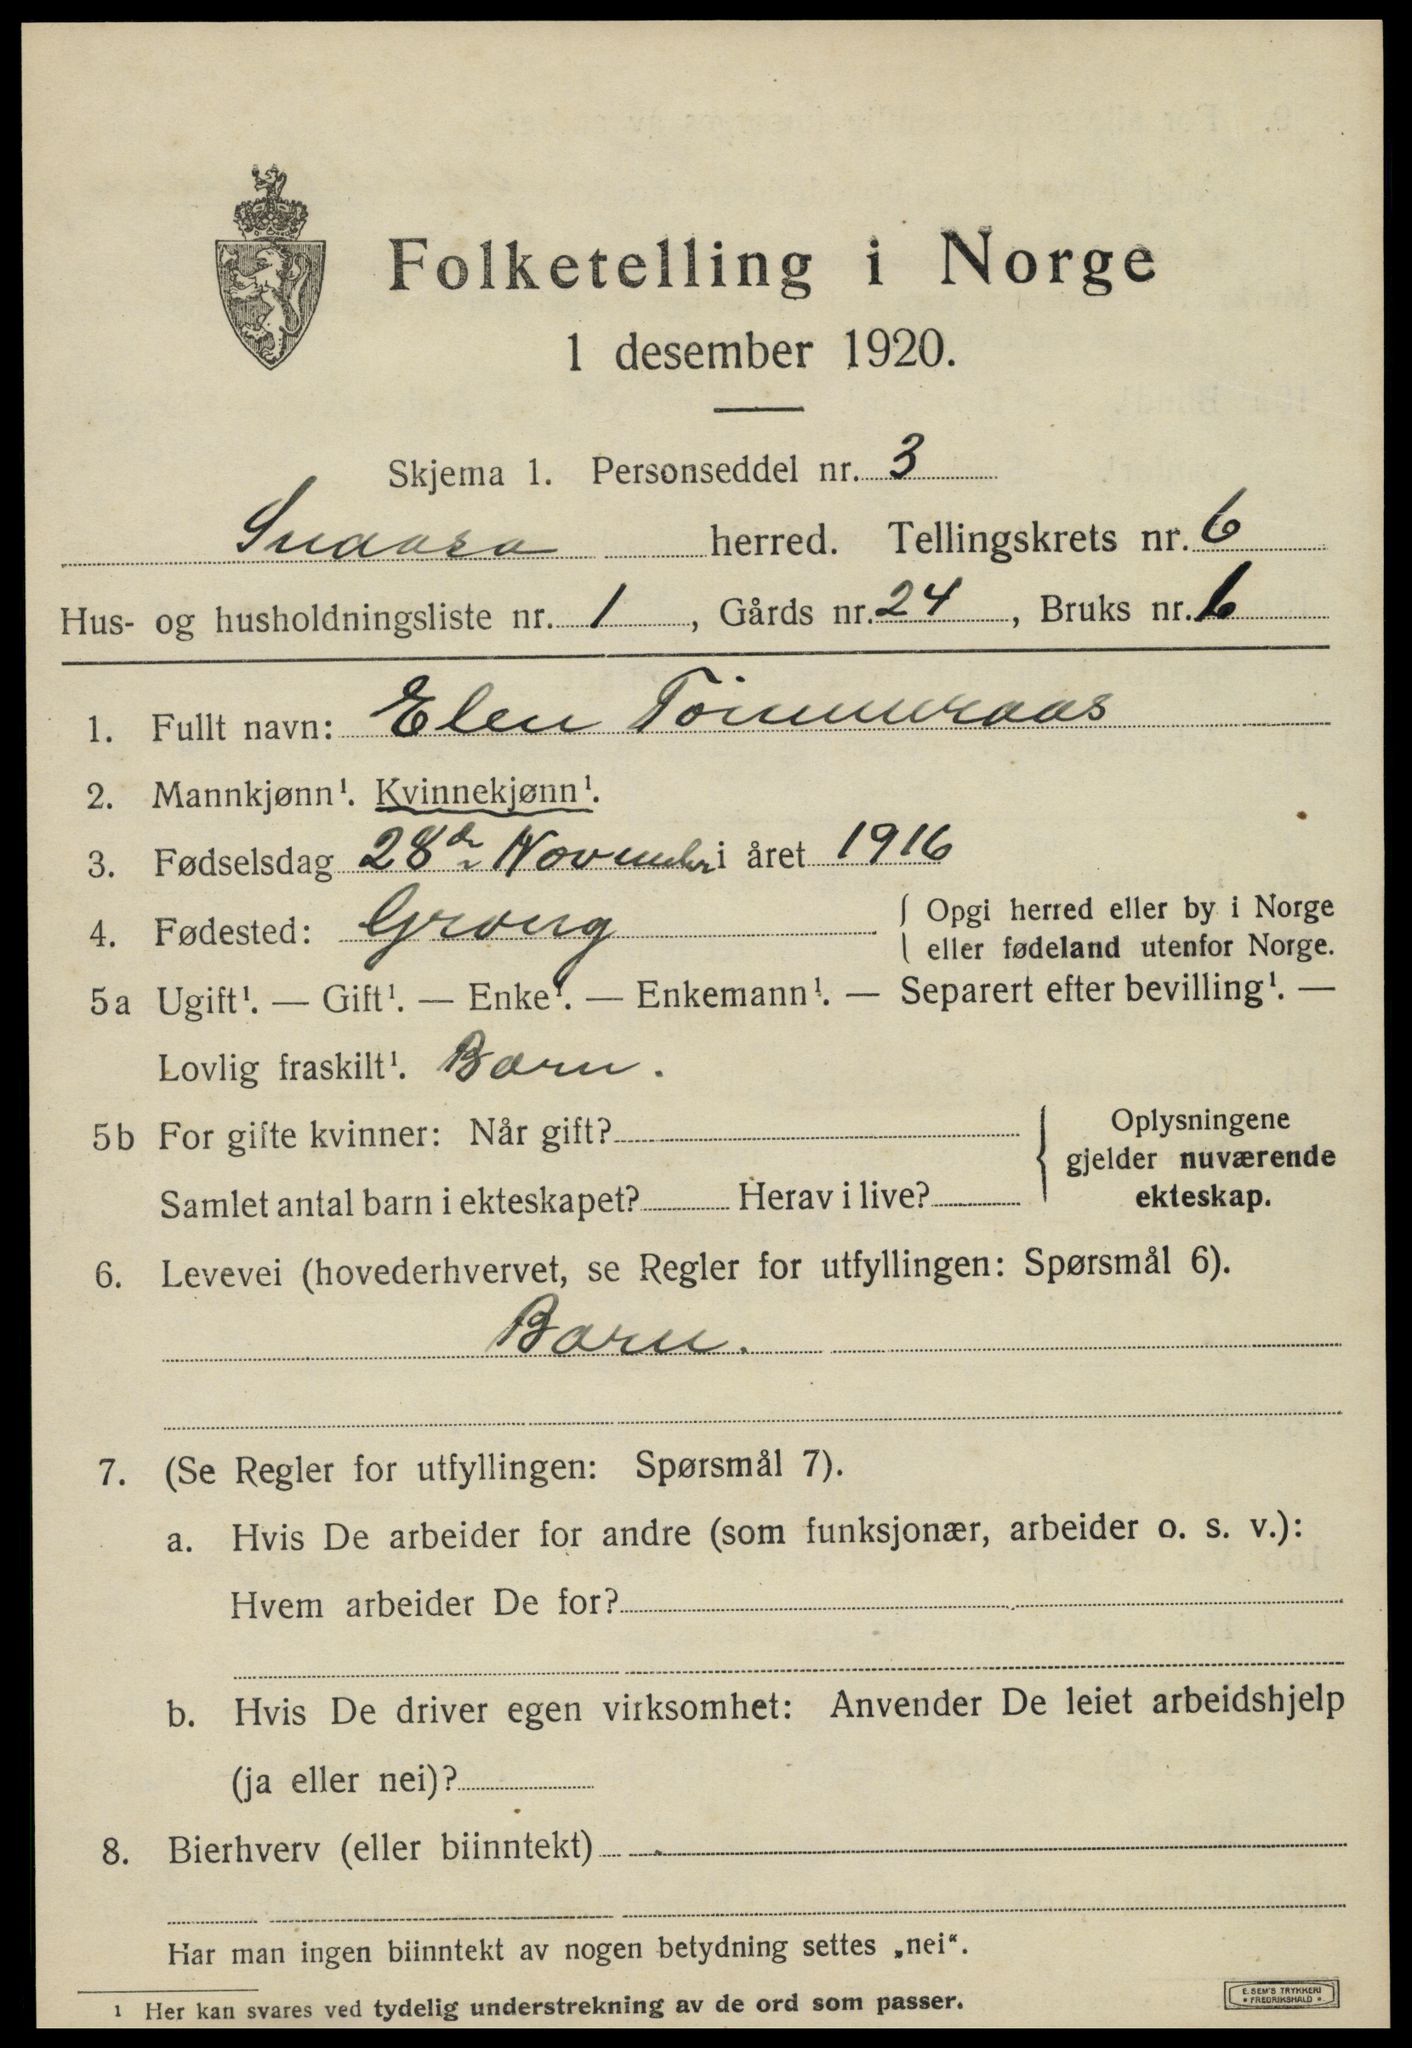 Folketelling i Norge
1 desember 1920.
Skjema 1. Personseddel nr. 3
Snaasa herred. Tellingskrets nr. 6
Hus- og husholdningsliste nr. 1, Gårds nr. 24, Bruks nr. 6
1. Fullt navn: Elen Tömmeraas
2. Mannkjønn¹. Kvinnekjønn¹.
3. Fødselsdag 28de November i året 1916
4. Fødested: Grong { Opgi herred eller by i Norge
eller fødeland utenfor Norge.
5a Ugift¹. — Gift¹. — Enke¹. — Enkemann¹. — Separert efter bevilling¹. —
Lovlig fraskilt¹. Barn.
5b For gifte kvinner: Når gift? { Oplysningene
gjelder nuværende
Samlet antal barn i ekteskapet? Herav i live? ekteskap.
6. Levevei (hovederhvervet, se Regler for utfyllingen: Spørsmål 6).
Barn.
7. (Se Regler for utfyllingen: Spørsmål 7).
a. Hvis De arbeider for andre (som funksjonær, arbeider o. s. v.):
Hvem arbeider De for?
b. Hvis De driver egen virksomhet: Anvender De leiet arbeidshjelp
(ja eller nei)?
8. Bierhverv (eller biinntekt)
Har man ingen biinntekt av nogen betydning settes „nei“.
¹ Her kan svares ved tydelig understrekning av de ord som passer.
E. SEM'S TRYKKERI
• FREDRIKSHALD •